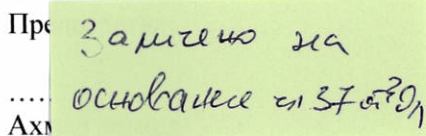 Пре
Заличено на
основание чл 37 от ЗОП
.....
Ахм